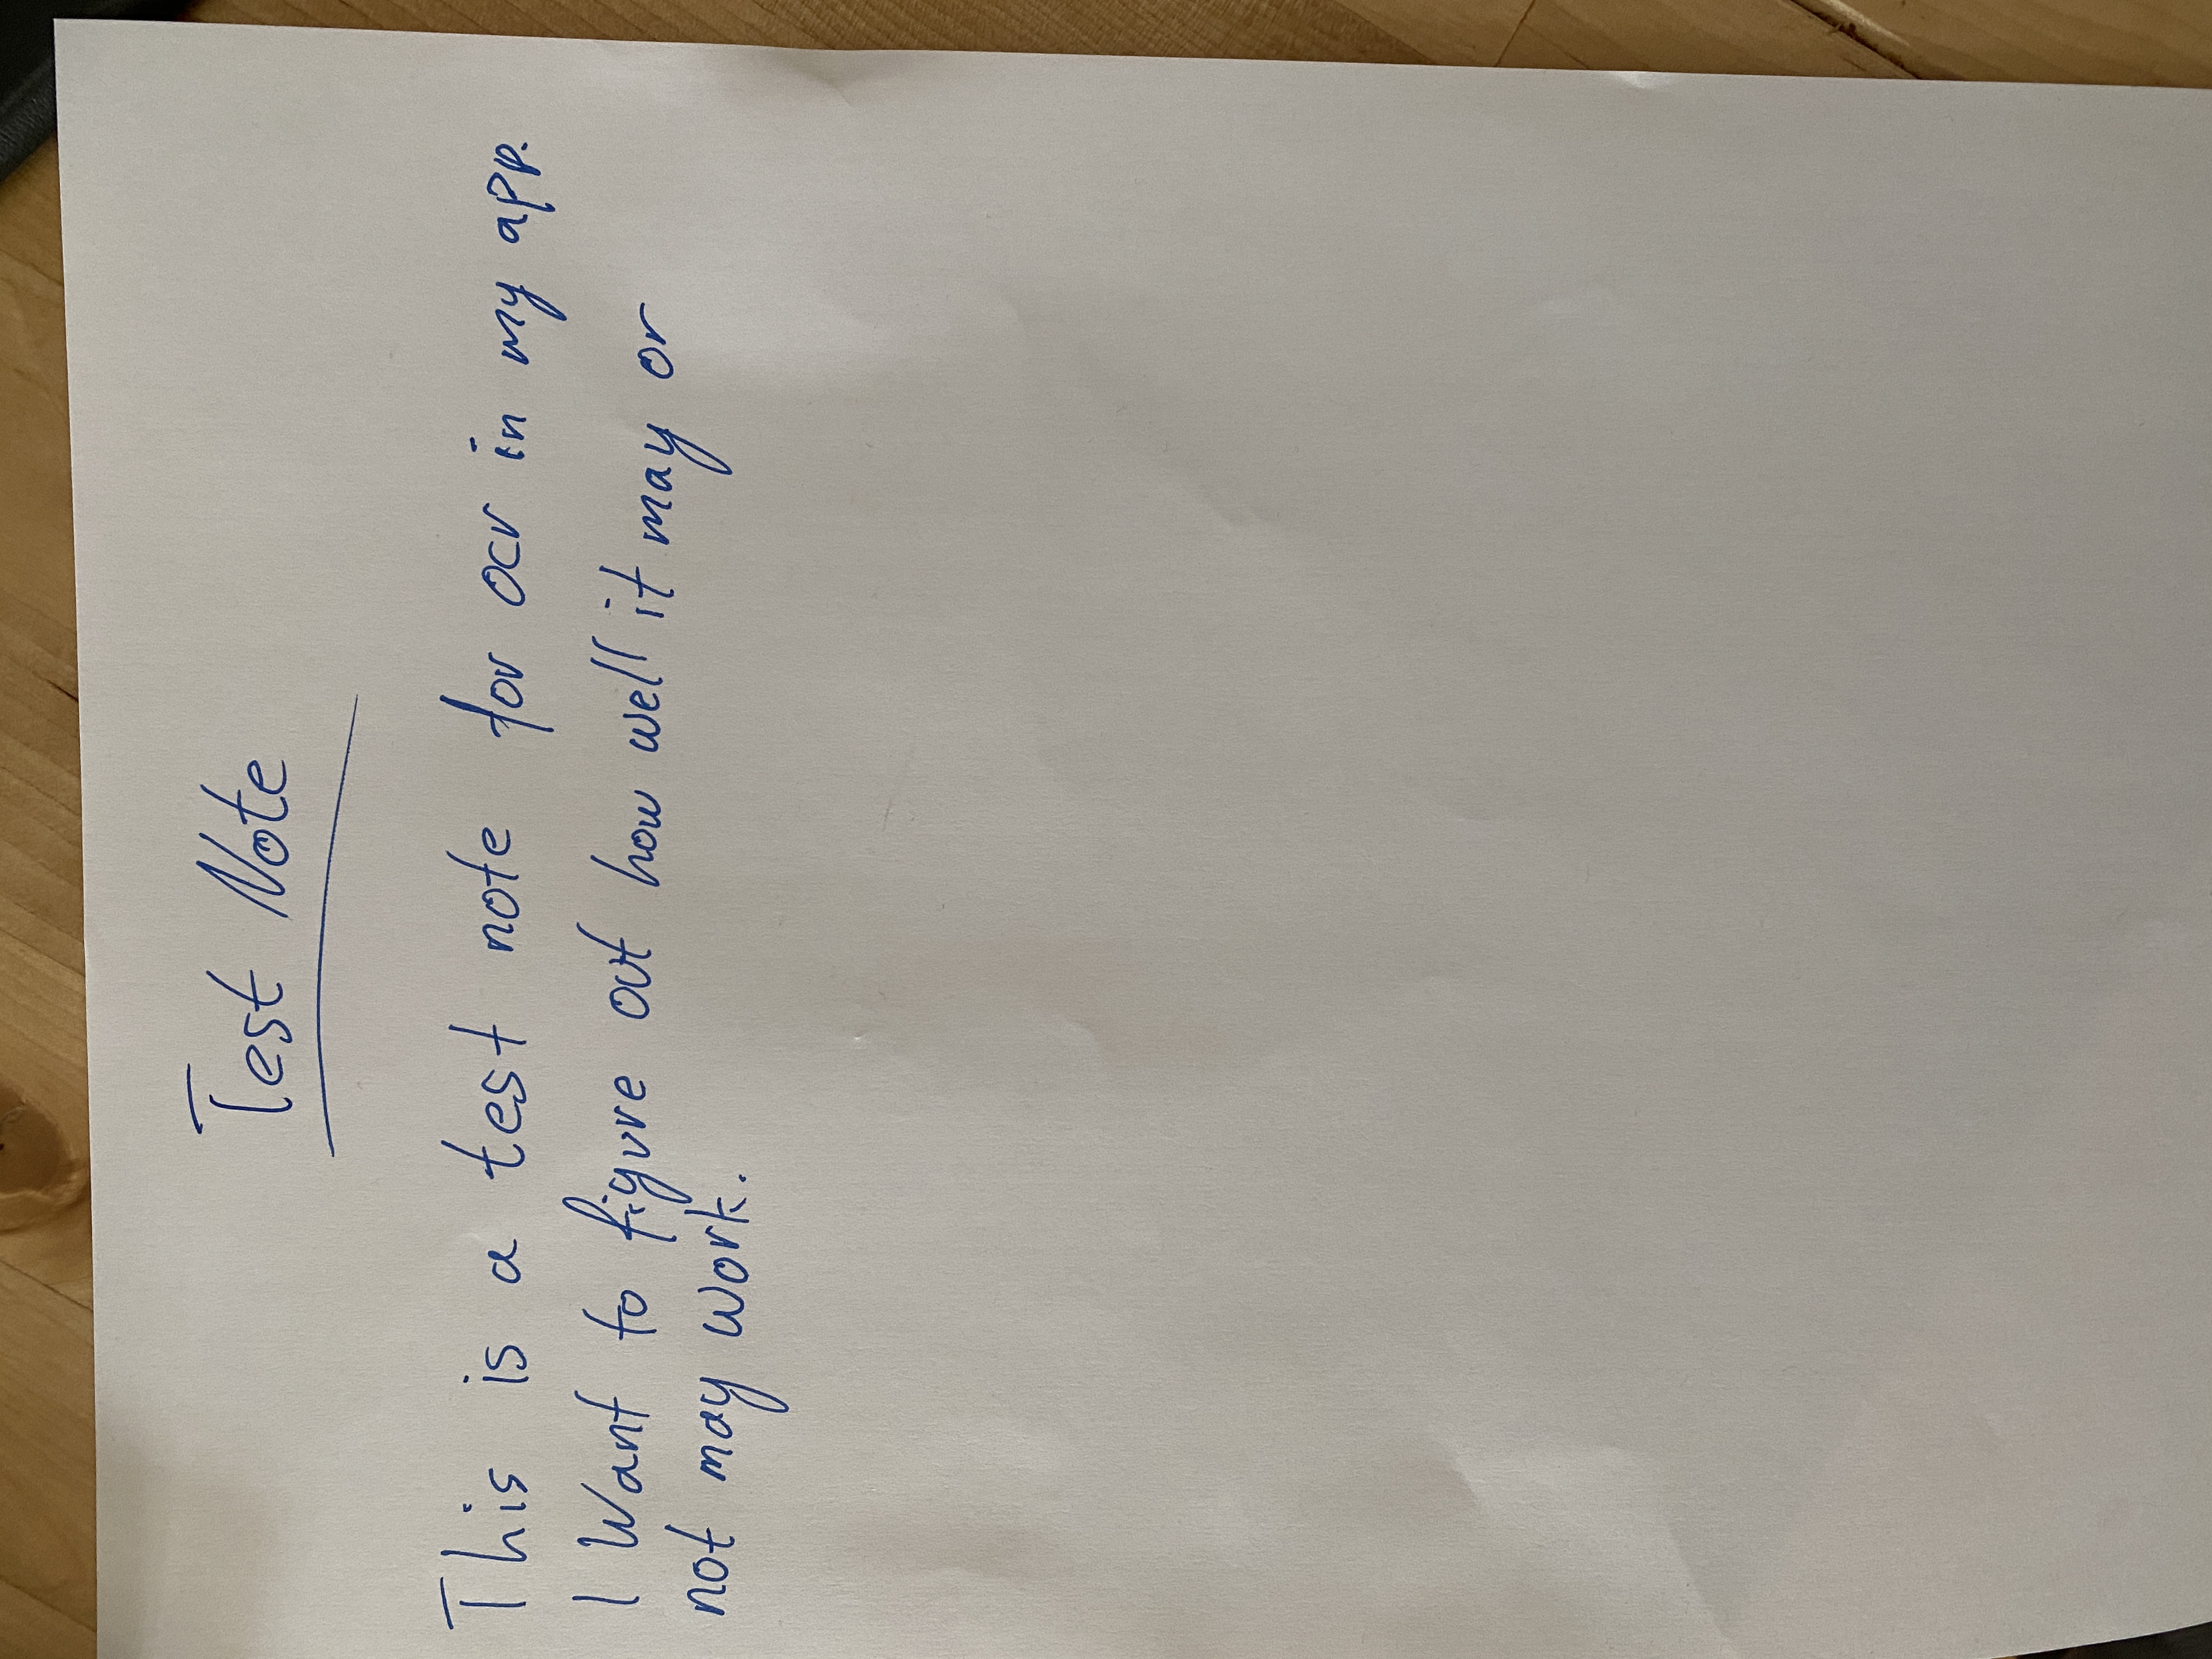 Test Note
This is a test note for ocr in my app.
I Want to figure out how well it may or
not may work.